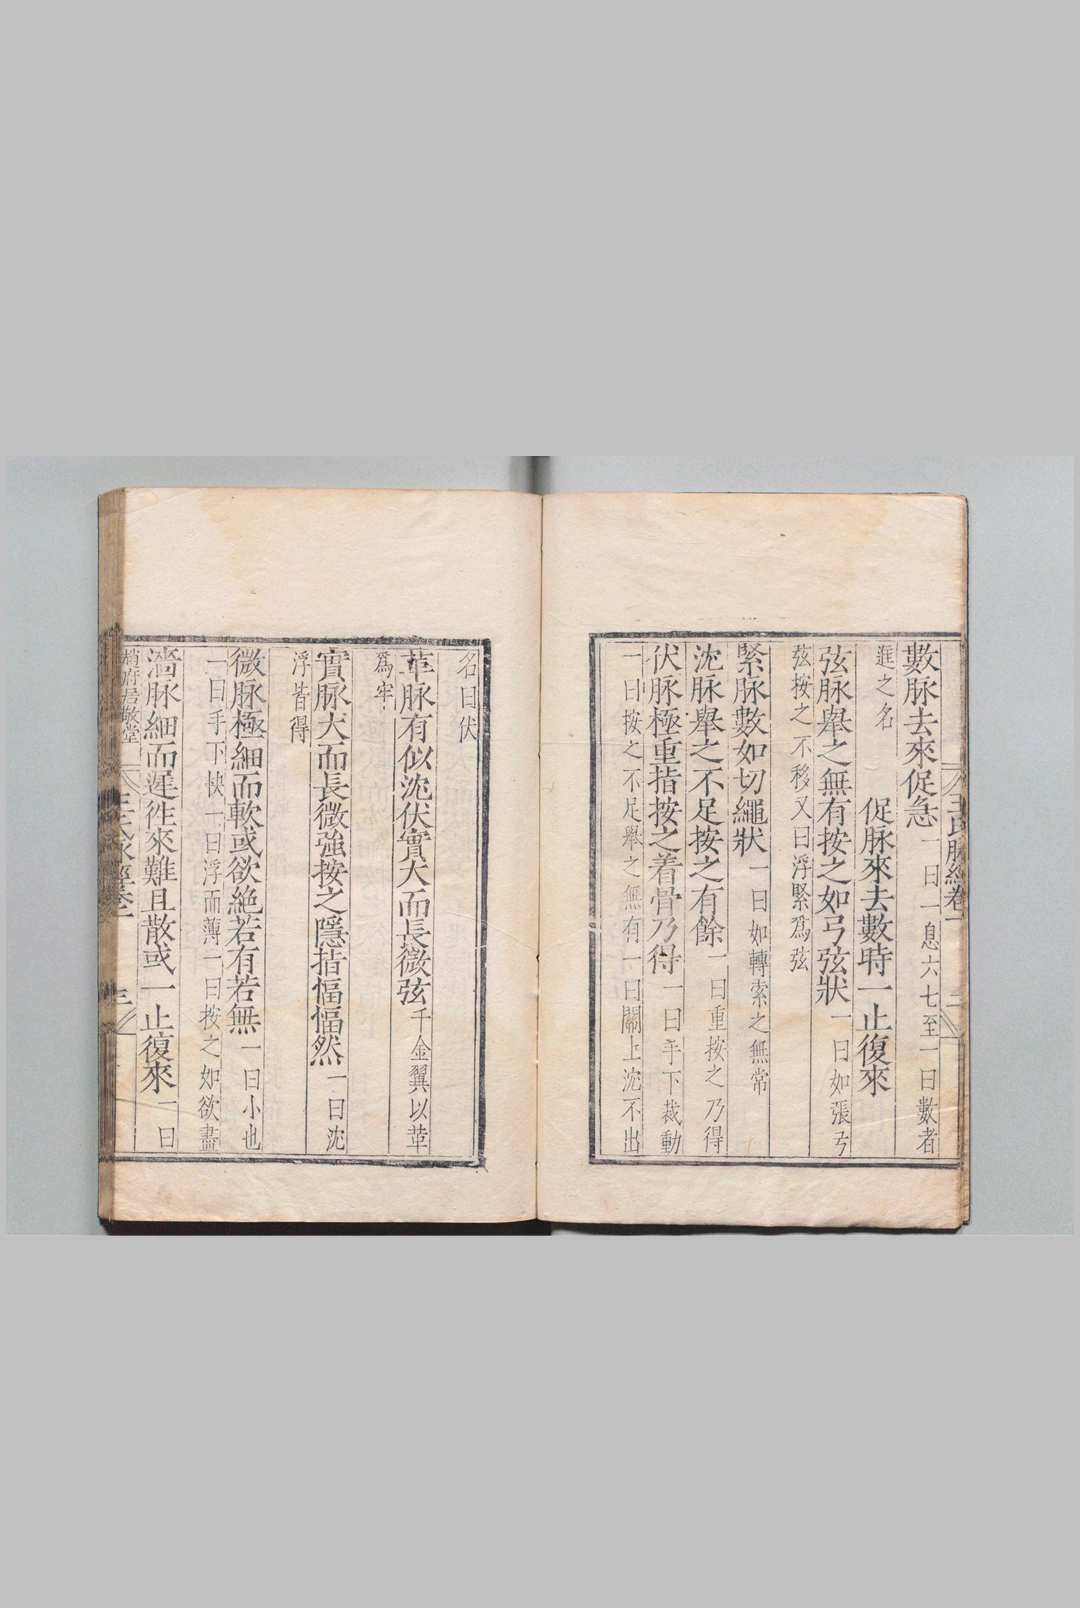 王氏脉經卷一
三
數脉去來促急一曰一息六七至一曰數者
進之名
促脉來去數時一止復來
弦脉舉之無有按之如弓弦狀一曰如張弓
弦按之不移又曰浮緊爲弦
緊脉數如切繩狀一曰如轉索之無常
沈脉舉之不足按之有餘一曰重按之乃得
伏脉極重指按之着骨乃得一曰手下裁動
一曰按之不足舉之無有一曰關上沈不出
名曰伏
革脉有似沈伏實大而長微弦千金翼以革
爲牢
實脉大而長微強按之隱指愊愊然一曰沈
浮皆得
微脉極細而軟或欲絶若有若無一曰小也
一曰手下快一曰浮而薄一曰按之如欲盡
濇脉細而遲徃來難且散或一止復來一曰
趙府居敬堂
王氏脉經卷一
三